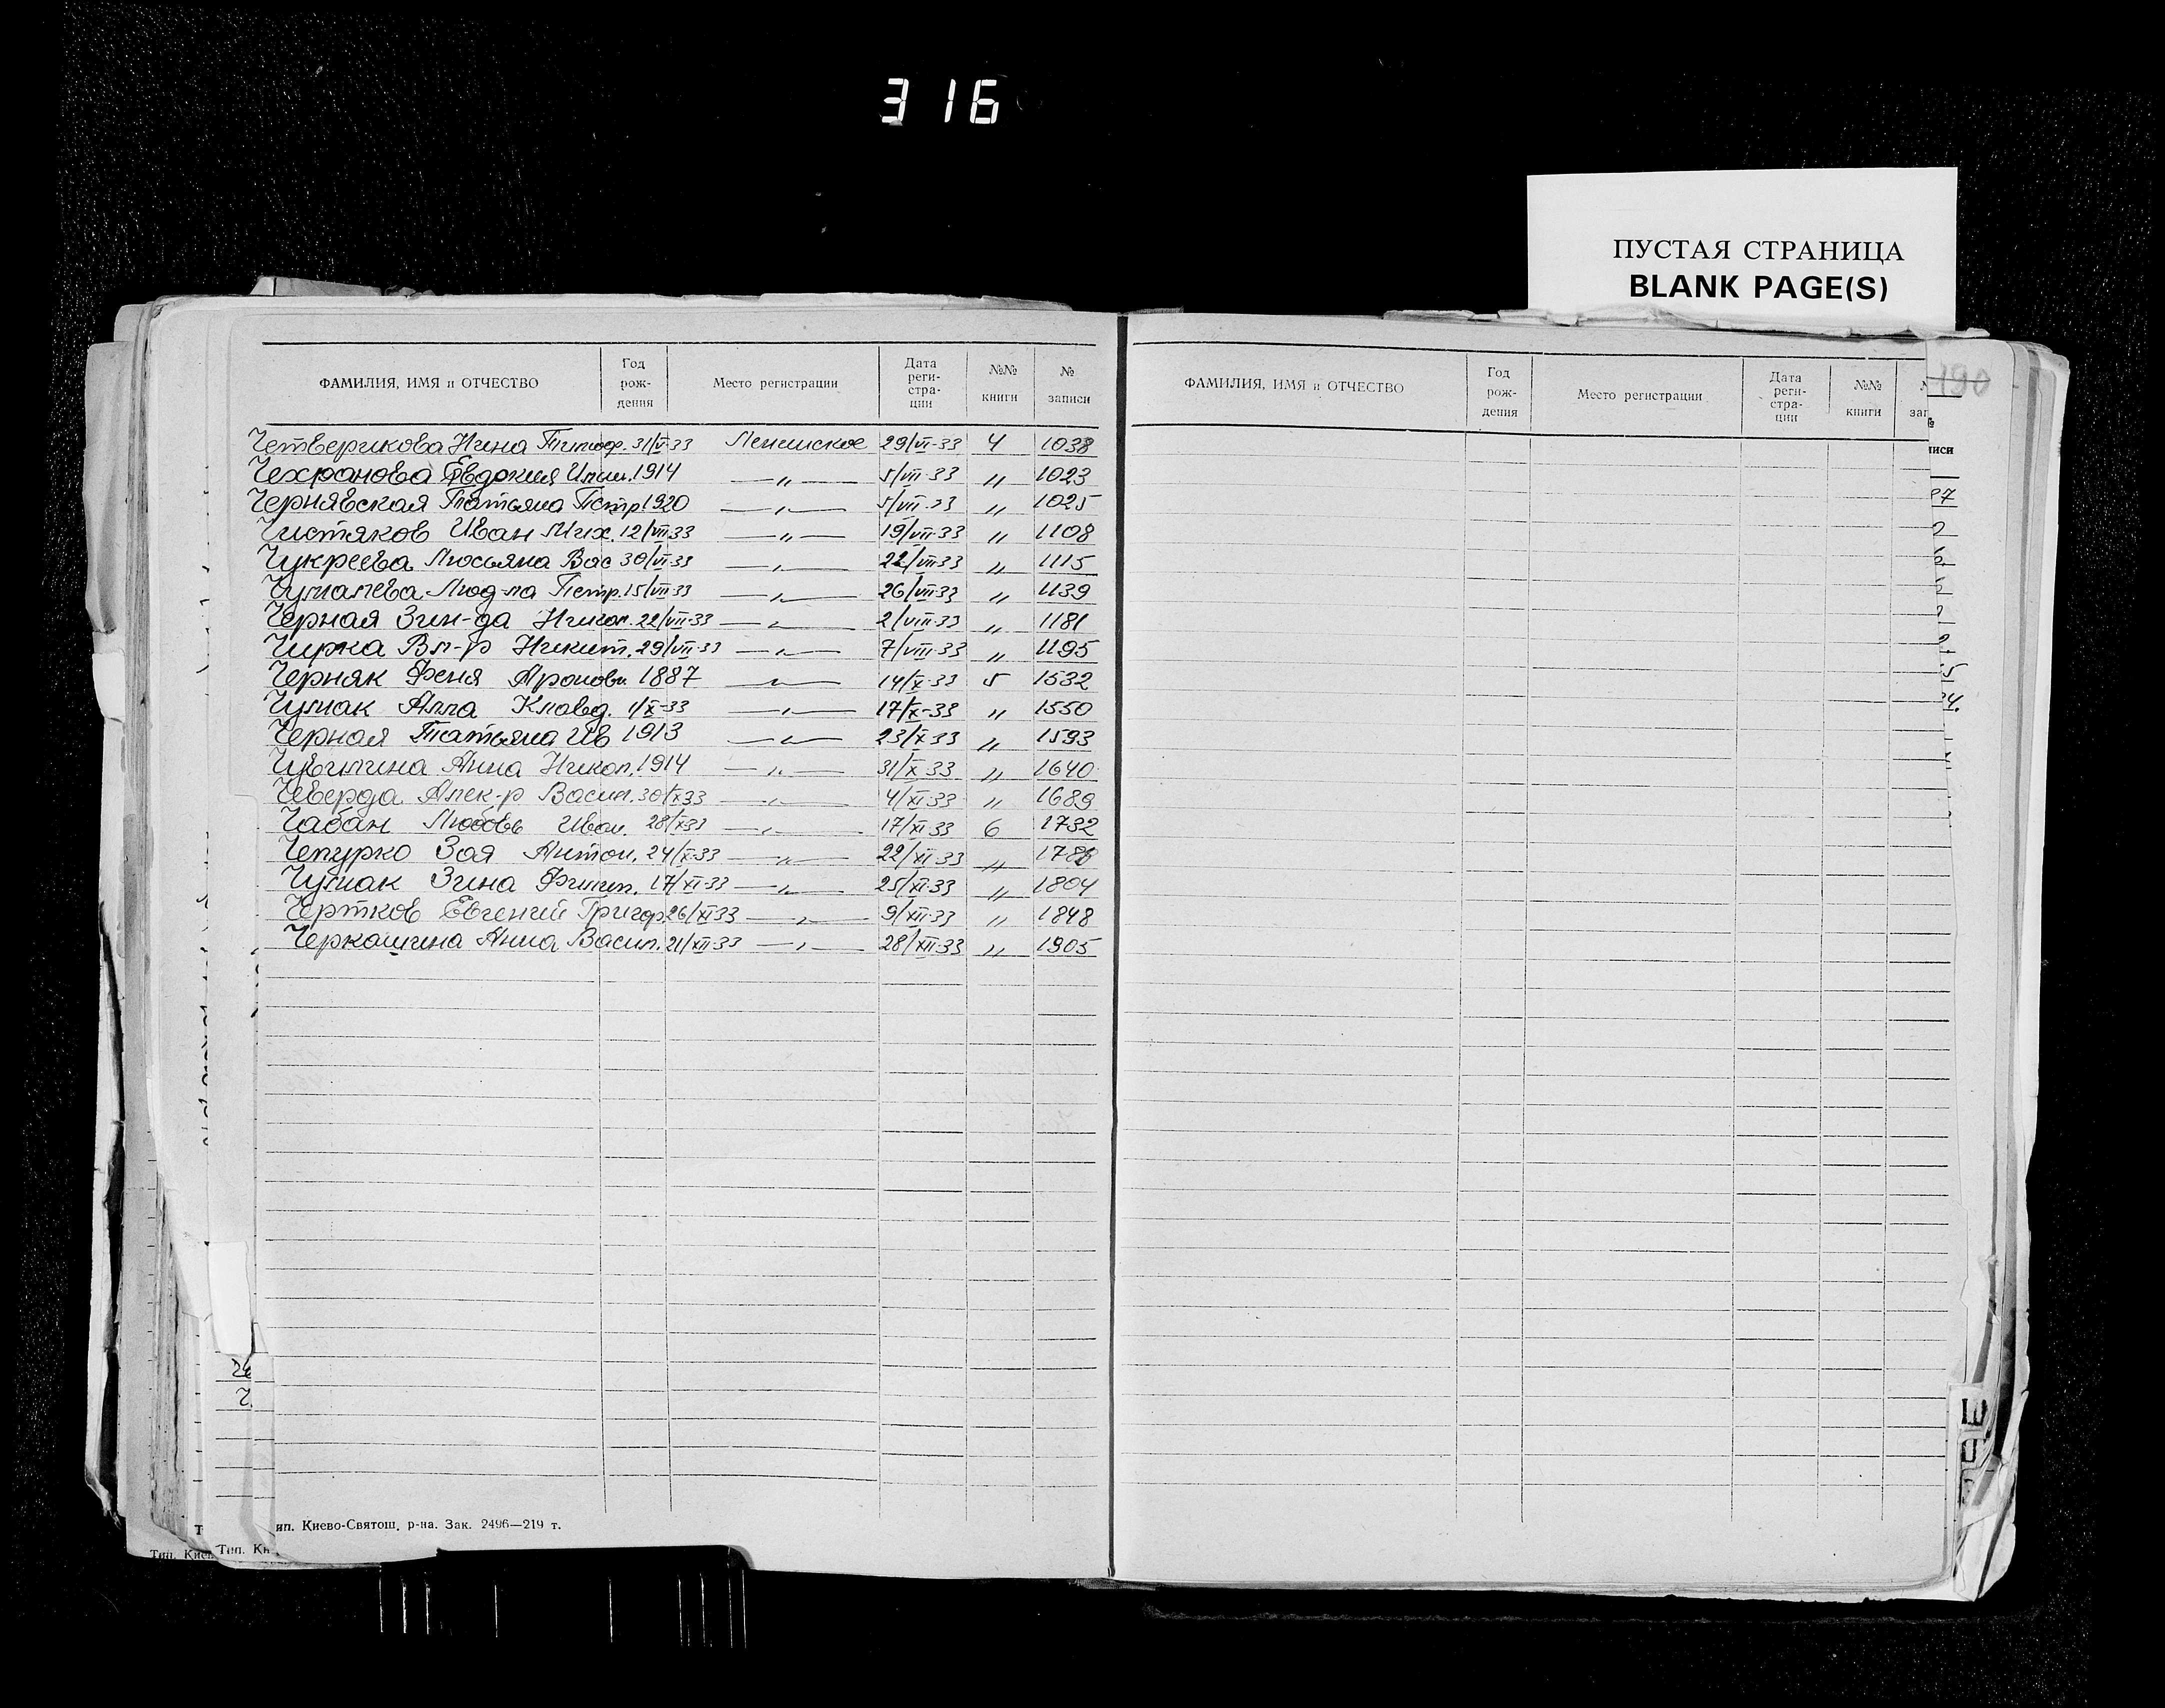 316
ПУСТАЯ СТРАНИЦА
BLANK PAGE(S)
ФАМИЛИЯ, ИМЯ и ОТЧЕСТВО Год рож-дения Место регистрации Дата реги-стра-ции №№ книги № записи
Четверикова Нина Тимоф. 31/V-33 Ленинское 29/VI-33 4 1038
Чехранова Евдокия 1914 —〃— 5/VII-33 〃 1023
Чернявская Татьяна Петр. 1920 —〃— 5/VII-33 〃 1025
Чистяков Иван Мих. 12/VII-33 —〃— 19/VII-33 〃 1108
Чукреева Люсьяна Вас 30/VI-33 —〃— 22/VII-33 〃 1115
Люд-ла Петр. 15/VII-33 —〃— 26/VII-33 〃 1139
Черная Зин-да Никол. 22/VII-33 —〃— 2/VIII-33 〃 1181
Чирка Вл-р Никит. 29/VII-33 —〃— 7/VIII-33 〃 1195
Черняк Феня Аронов. 1887 —〃— 14/X-33 5 1532
Чумак Алла Клавд. 1/X-33 —〃— 17/X-33 〃 1550
Черная Татьяна Ив 1913 —〃— 23/X 33 〃 1593
Чувилина Анна Никол. 1914 —〃— 31/X 33 〃 1640
Чеверда Алек-р Васил. 30/X33 —〃— 4/XI-33 〃 1689
Чабан Любовь Иван. 28/X33 —〃— 17/XI 33 6 1732
Чепурко Зоя Антон. 24/X-33 —〃— 22/XI-33 〃
Чумак Зина Филип. 17/XI-33 —〃— 25/XI-33 〃 1804
Чертков Евгений Григор. 26/XI33 —〃— 9/XII-33 〃 1848
Черкашина Анна Васил. 21/XII-33 —〃— 28/XII-33 〃 1905
ип. Киево-Святош, р-на. Зак. 2496—219 т.
Тип. Ки
Тип. Кие
ФАМИЛИЯ, ИМЯ и ОТЧЕСТВО Год рож-дения Место регистрации Дата реги-стра-ции №№ книги № зап
190